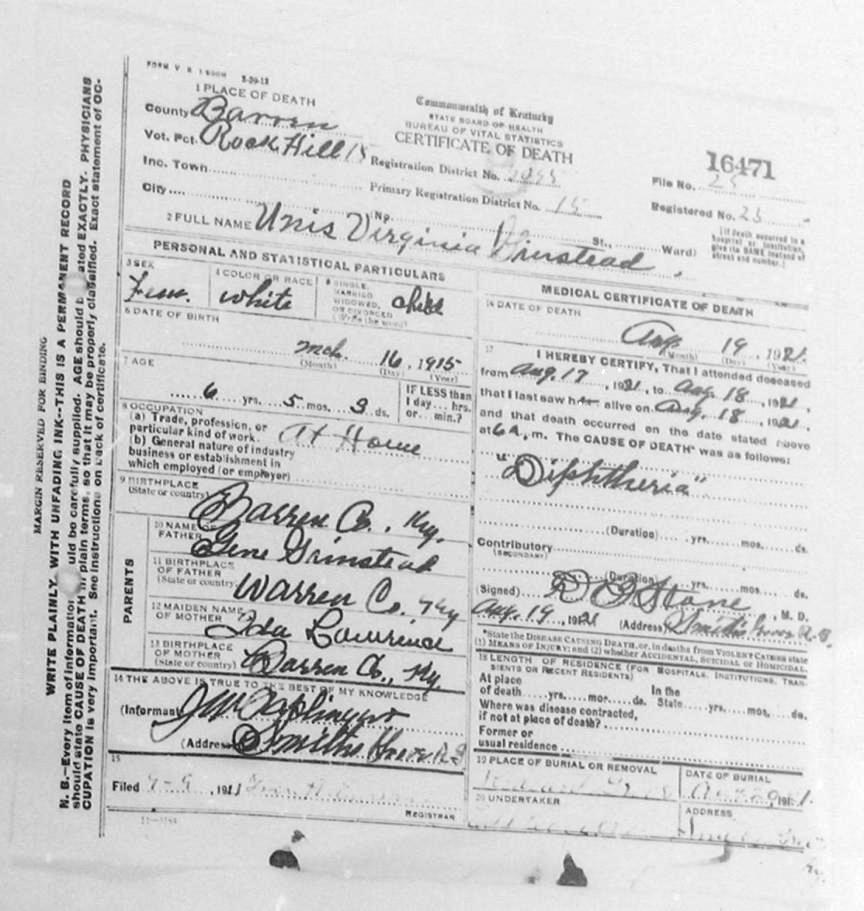 FORM V. S.
1 PLACE OF DEATH
County Barren
Vot. Pct. Rock Hill 15
Inc. Town
City
Commonwealth of Kentucky
STATE BOARD OF HEALTH
BUREAU OF VITAL STATISTICS
CERTIFICATE OF DEATH
Registration District No.
Primary Registration District No. 15
No. St., Ward)
16471
File No. 25
Registered No. 25
(If death occurred in a
hospital or institution,
give its NAME instead of
street and number.)
2 FULL NAME Unis Virginia Grinstead
PERSONAL AND STATISTICAL PARTICULARS
3 SEX
Fem.
4 COLOR OR RACE
white
5 SINGLE,
MARRIED
WIDOWED,
OR DIVORCED
(Write the word)
child
6 DATE OF BIRTH
mch. 16, 1915
(Month) (Day) (Year)
7 AGE
6 yrs. 5 mos. 3 ds.
IF LESS than
1 day... hrs.
or... min.?
8 OCCUPATION
(a) Trade, profession, or
particular kind of work. At Home
(b) General nature of industry
business or establishment in
which employed (or employer)
9 BIRTHPLACE
(State or country)
Barren Co., Ky.
PARENTS
10 NAME OF
FATHER
Gene Grinstead
11 BIRTHPLACE
OF FATHER
(State or country)
Warren Co. Ky
12 MAIDEN NAME
OF MOTHER
Ida Lawrence
13 BIRTHPLACE
OF MOTHER
(State or country)
Barren Co., Ky.
14 THE ABOVE IS TRUE TO THE BEST OF MY KNOWLEDGE
(Informant
(Address Smiths Grove R.
15
Filed 9-9, 192
REGISTRAR
MEDICAL CERTIFICATE OF DEATH
16 DATE OF DEATH
Aug. 19, 1921.
(Month) (Day) (Year)
17 I HEREBY CERTIFY, That I attended deceased
from Aug. 17, 1921, to Aug. 18, 1921,
that I last saw her alive on Aug. 18, 1921,
and that death occurred on the date stated above
at 6 A. m. The CAUSE OF DEATH* was as follows:
"Diphtheria"
(Duration) yrs. mos. ds.
Contributory
(SECONDARY)
(Duration) yrs. mos. ds.
(Signed) Stone, M. D.
Aug. 19, 1921 (Address) Smiths Grove
*State the DISEASE CAUSING DEATH, or, in deaths from VIOLENT CAUSES state
(1) MEANS OF INJURY; and (2) whether ACCIDENTAL, SUICIDAL or HOMICIDAL.
18 LENGTH OF RESIDENCE (FOR HOSPITALS, INSTITUTIONS, TRAN-
SIENTS OR RECENT RESIDENTS)
At place In the
of death yrs. mos. ds. State yrs. mos. ds.
Where was disease contracted,
if not at place of death?
Former or
usual residence
19 PLACE OF BURIAL OR REMOVAL
DATE OF BURIAL
20 UNDERTAKER
ADDRESS
MARGIN RESERVED FOR BINDING
WRITE PLAINLY, WITH UNFADING INK--THIS IS A PERMANENT RECORD
N. B.--Every item of information should be carefully supplied. AGE should be stated EXACTLY. PHYSICIANS
should state CAUSE OF DEATH in plain terms, so that it may be properly classified. Exact statement of OC-
CUPATION is very important. See instructions on back of certificate.